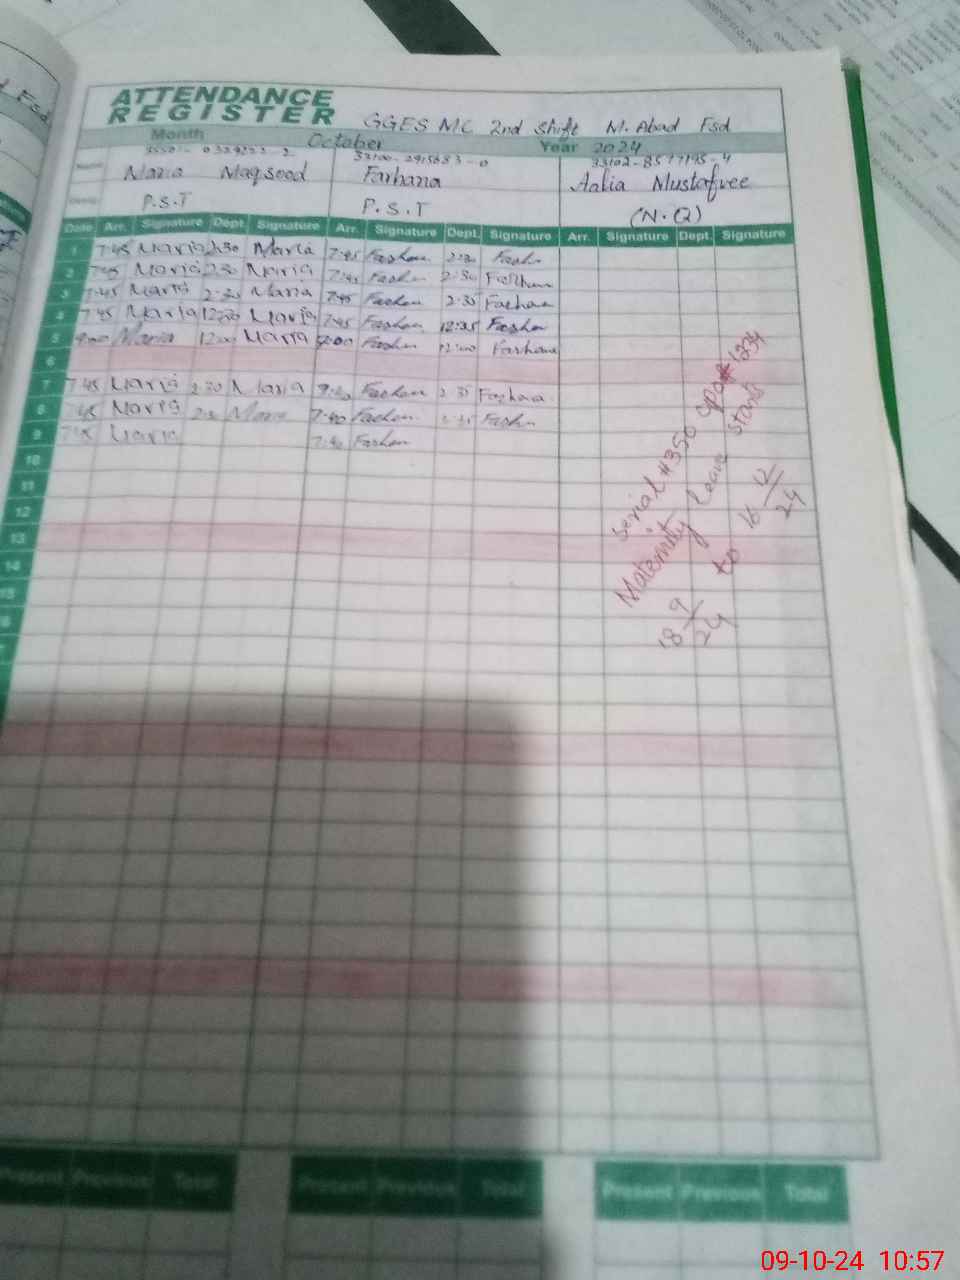 ATTENDANCE
REGISTER GGES MC 2nd Shift M. Abad Fsd
Month October Year 2024
33100-2915683-0 33102-8577195-4
Name Maria Maqsood Farhana Aalia Mustafvee
P.S.T P.S.T (N.Q)
Date Arr. Signature Dept. Signature Arr. Signature Dept. Signature Arr. Signature Dept. Signature
1 7:45 Maria 2:30 Maria 7:45 Farhan 2:30 Farhn
2 7:45 Maria 2:30 Maria 7:45 Farhan 2:30 Farhan
3 7:45 Maria 2:30 Maria 7:45 Farhan 2:35 Farhana
4 7:45 Maria 12:30 Maria 7:45 Farhan 12:35 Farhn
5 9:00 Maria 12:00 Maria 9:00 Farhan 12:00 Farhana
6
7 7:45 Maria 2:30 Maria Farhan 2:35 Farhana
8 7:45 Maria 2:30 Maria 7:40 Farhan 2:35 Farhn
9 7:45 Maria 7:40 Farhan
10
11
12
13
14
15
Serial #350 1234
Maternity leave start
18 9/24 to 16 12/24
Present Previous Total Present Previous Total Present Previous Total
09-10-24 10:57